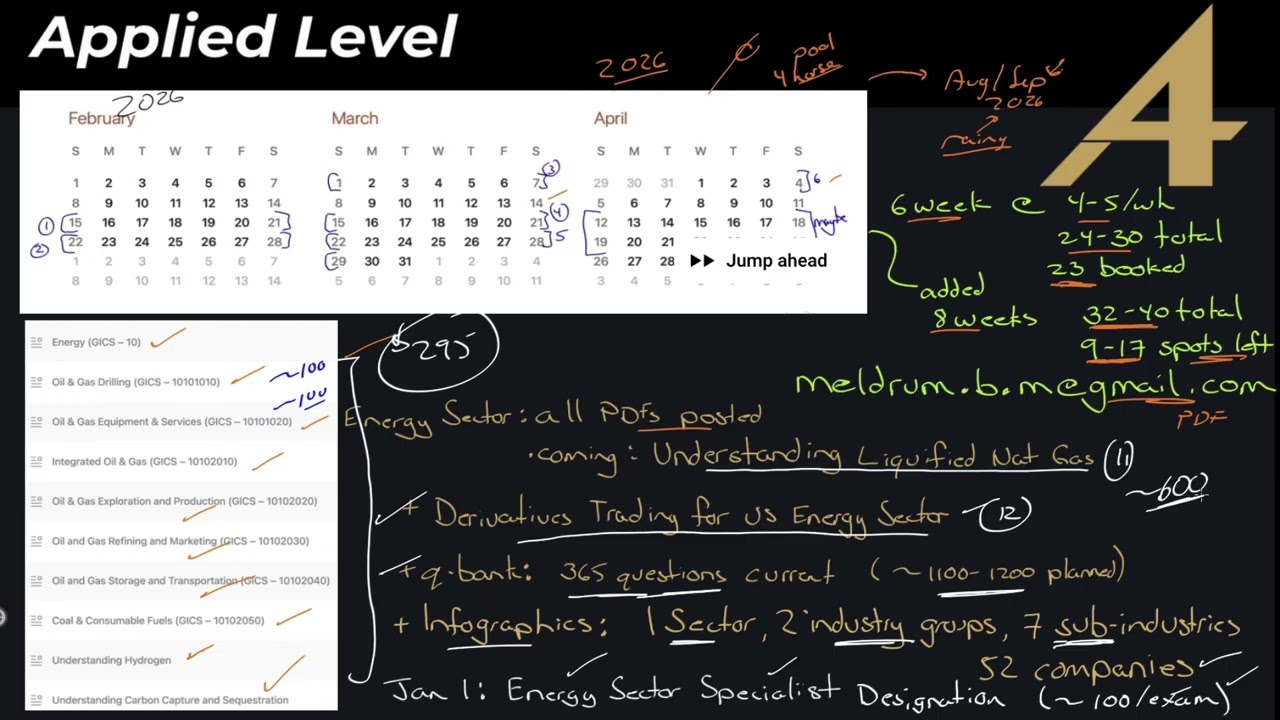 Applied Level
2026
pool
4 horse
Aug/Sep
2026
rainy
2026
February
S M T W T F S
1 2 3 4 5 6 7
8 9 10 11 12 13 14
① 15 16 17 18 19 20 21
② 22 23 24 25 26 27 28
1 2 3 4 5 6 7
8 9 10 11 12 13 14
March
S M T W T F S
1 2 3 4 5 6 7 ③
8 9 10 11 12 13 14
15 16 17 18 19 20 21 ④
22 23 24 25 26 27 28 5
29 30 31 1 2 3 4
5 6 7 8 9 10 11
April
S M T W T F S
29 30 31 1 2 3 4 6
5 6 7 8 9 10 11
12 13 14 15 16 17 18 maybe
19 20 21
26 27 28
3 4 5
Jump ahead
6 week @ 4-5/wk
24-30 total
23 booked
added
8 weeks
32-40 total
9-17 spots left
meldrum.b.m@gmail.com
PDF
Energy (GICS – 10)
Oil & Gas Drilling (GICS – 10101010)
~100
~100
Oil & Gas Equipment & Services (GICS – 10101020)
Integrated Oil & Gas (GICS – 10102010)
Oil & Gas Exploration and Production (GICS – 10102020)
Oil and Gas Refining and Marketing (GICS – 10102030)
Oil and Gas Storage and Transportation (GICS – 10102040)
Coal & Consumable Fuels (GICS – 10102050)
Understanding Hydrogen
Understanding Carbon Capture and Sequestration
$295
Energy Sector: all PDFs posted
· coming: Understanding Liquified Nat Gas ⑪
~600
+ Derivatives Trading for US Energy Sector – ⑫
+ q-bank: 365 questions current (~1100-1200 planned)
+ Infographics: 1 Sector, 2 industry groups, 7 sub-industries
52 companies
Jan 1: Energy Sector Specialist Designation (~100/exam)